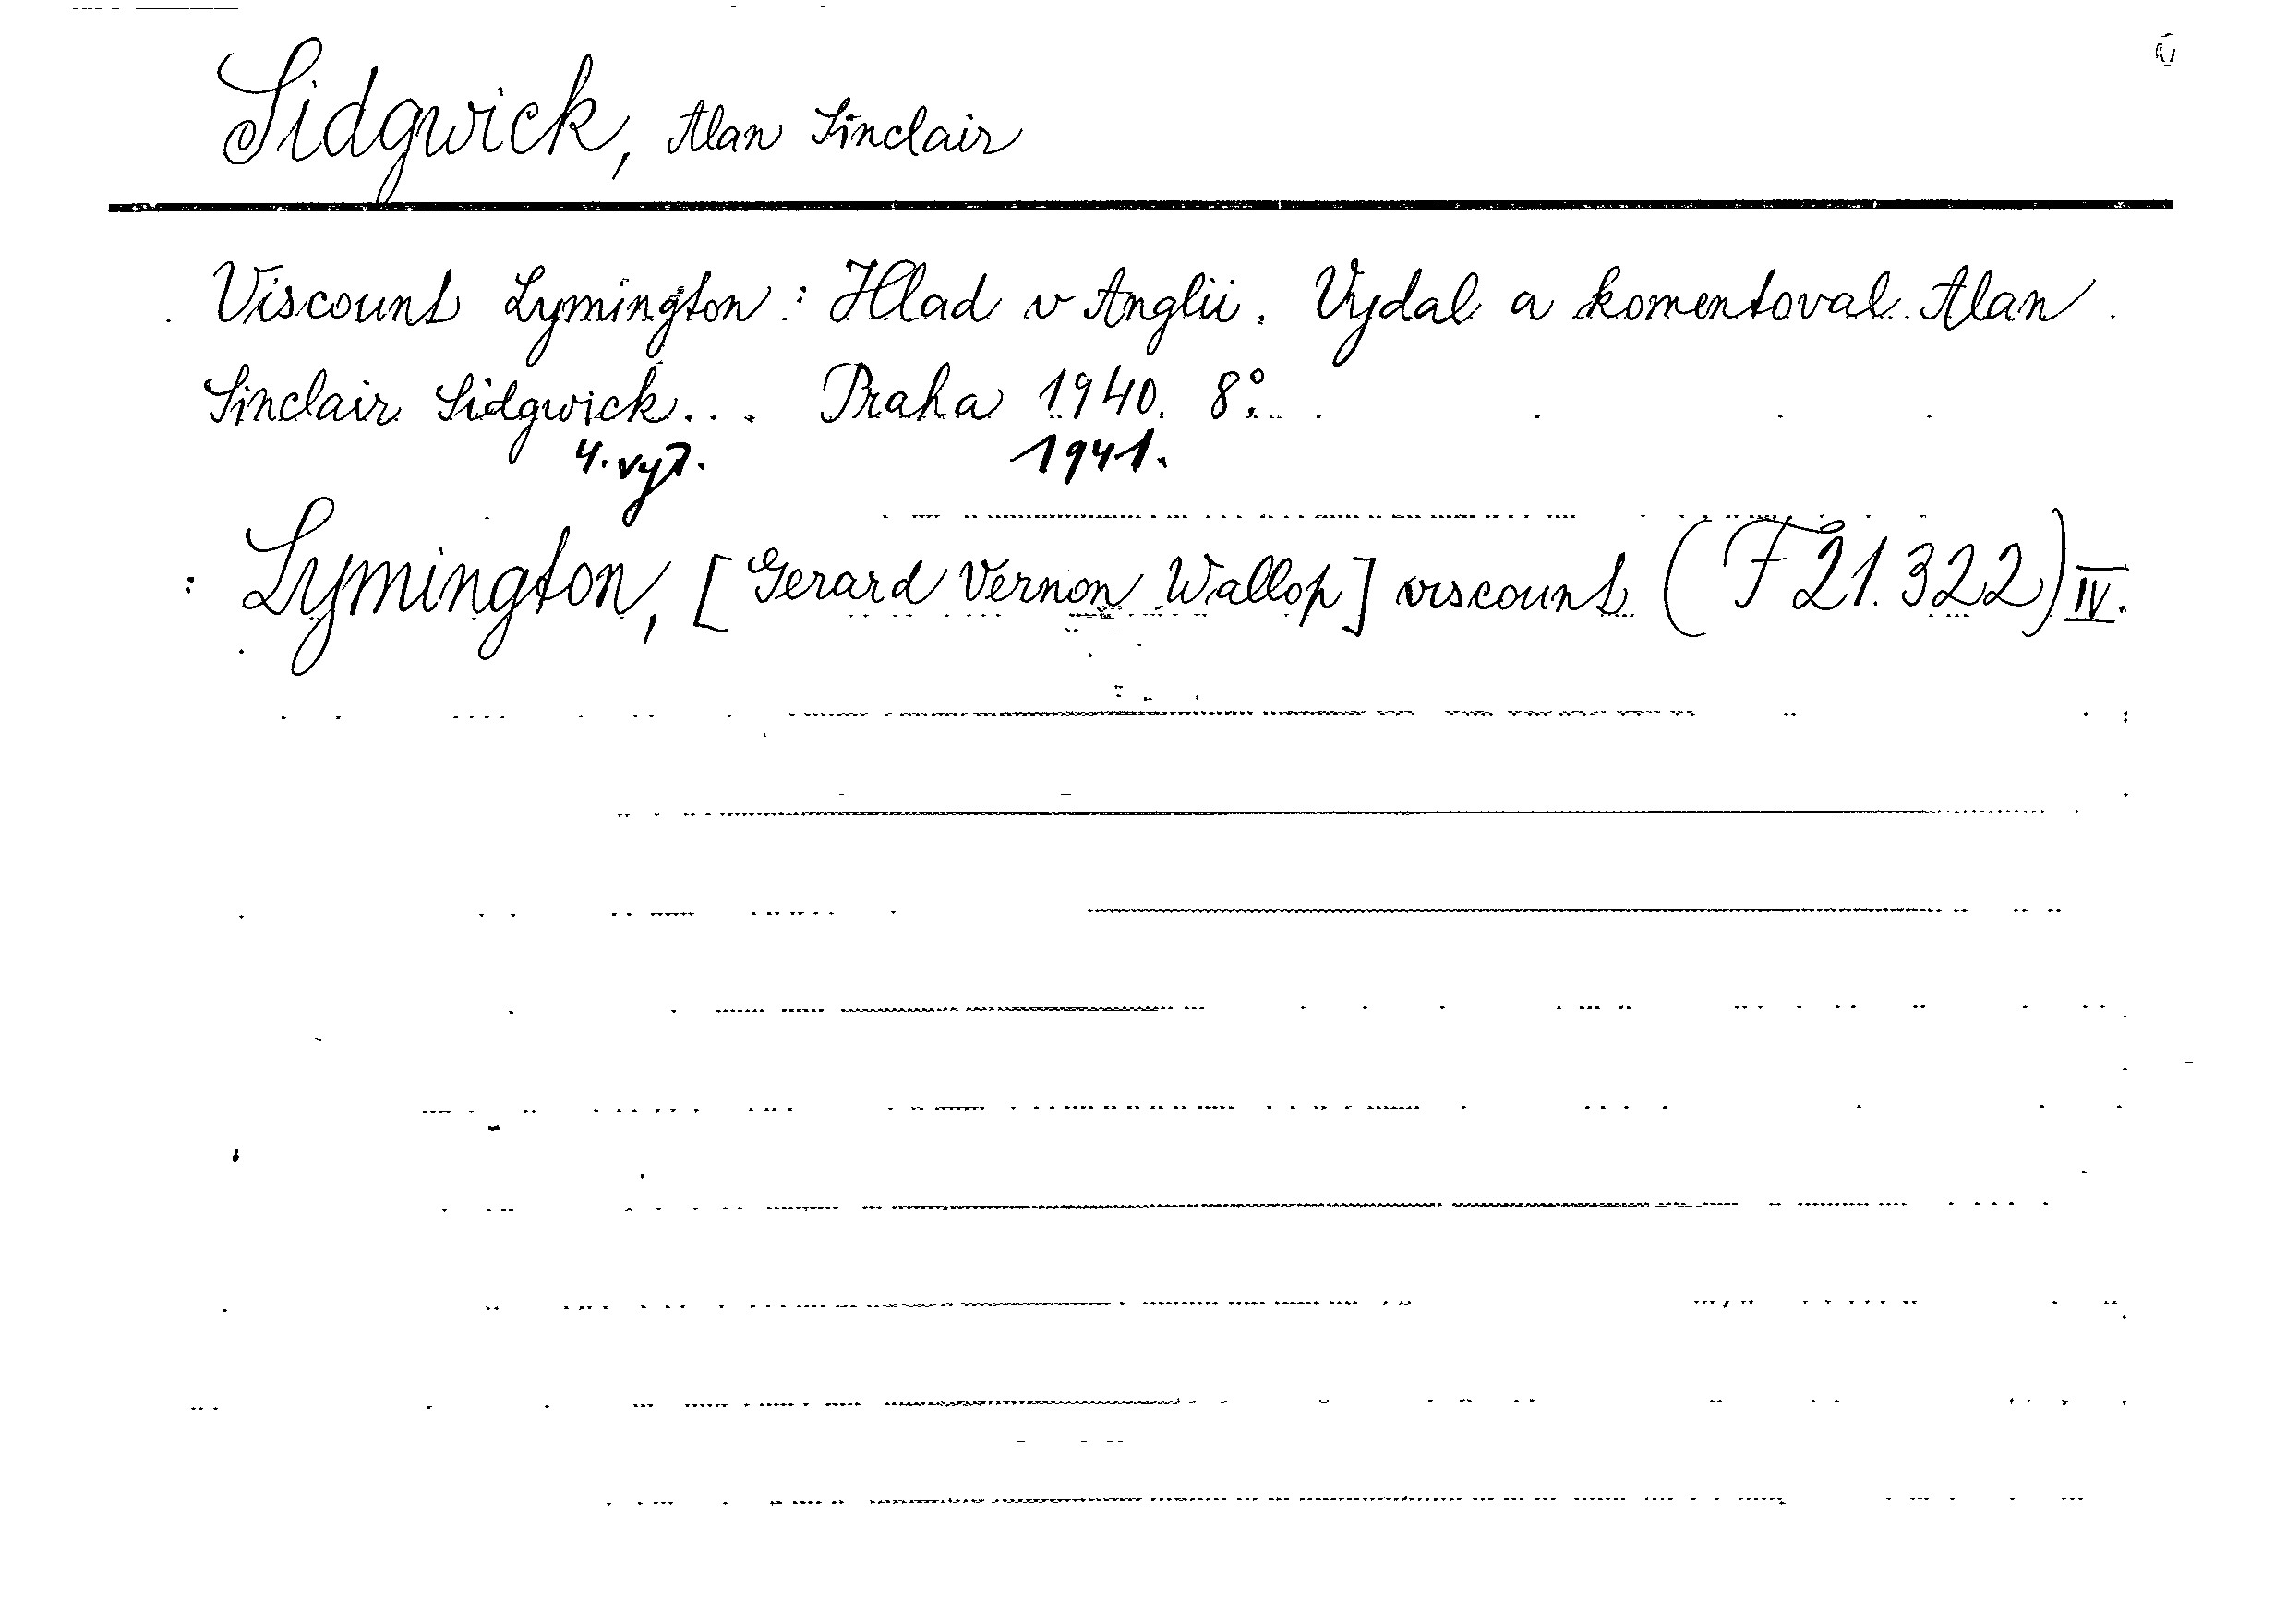 Sidgwick, Alan Sinclair
Viscount Lymington: Hlad v Anglii. Vydal a komentoval Alan
Sinclair Sidgwick... Praha 1940. 8°.
4. vyd. 1941.
Lymington, [Gerard Vernon Wallop] viscount (F 21.322) IV.